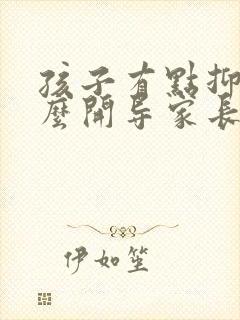 孩子有點抑
麼開导家長
伊如笙